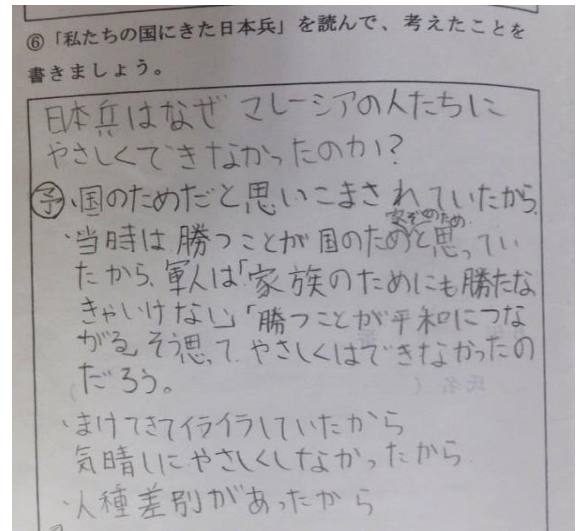 ⑥「私たちの国にきた日本兵」を読んで、考えたことを
書きましょう。
日本兵はなぜ マレーシアの人たちに
やさしくできなかったのか?
予・国のためだと思いこまされていたから。
家ぞのため
・当時は勝つことが国のためと思ってい
たから、軍人は「家族のためにも勝たな
きゃいけない」「勝つことが平和につな
がる」そう思ってやさしくはできなかったの
だろう。
・まけてきてイライラしていたから
気晴しにやさしくしなかったから
・人種差別があったから